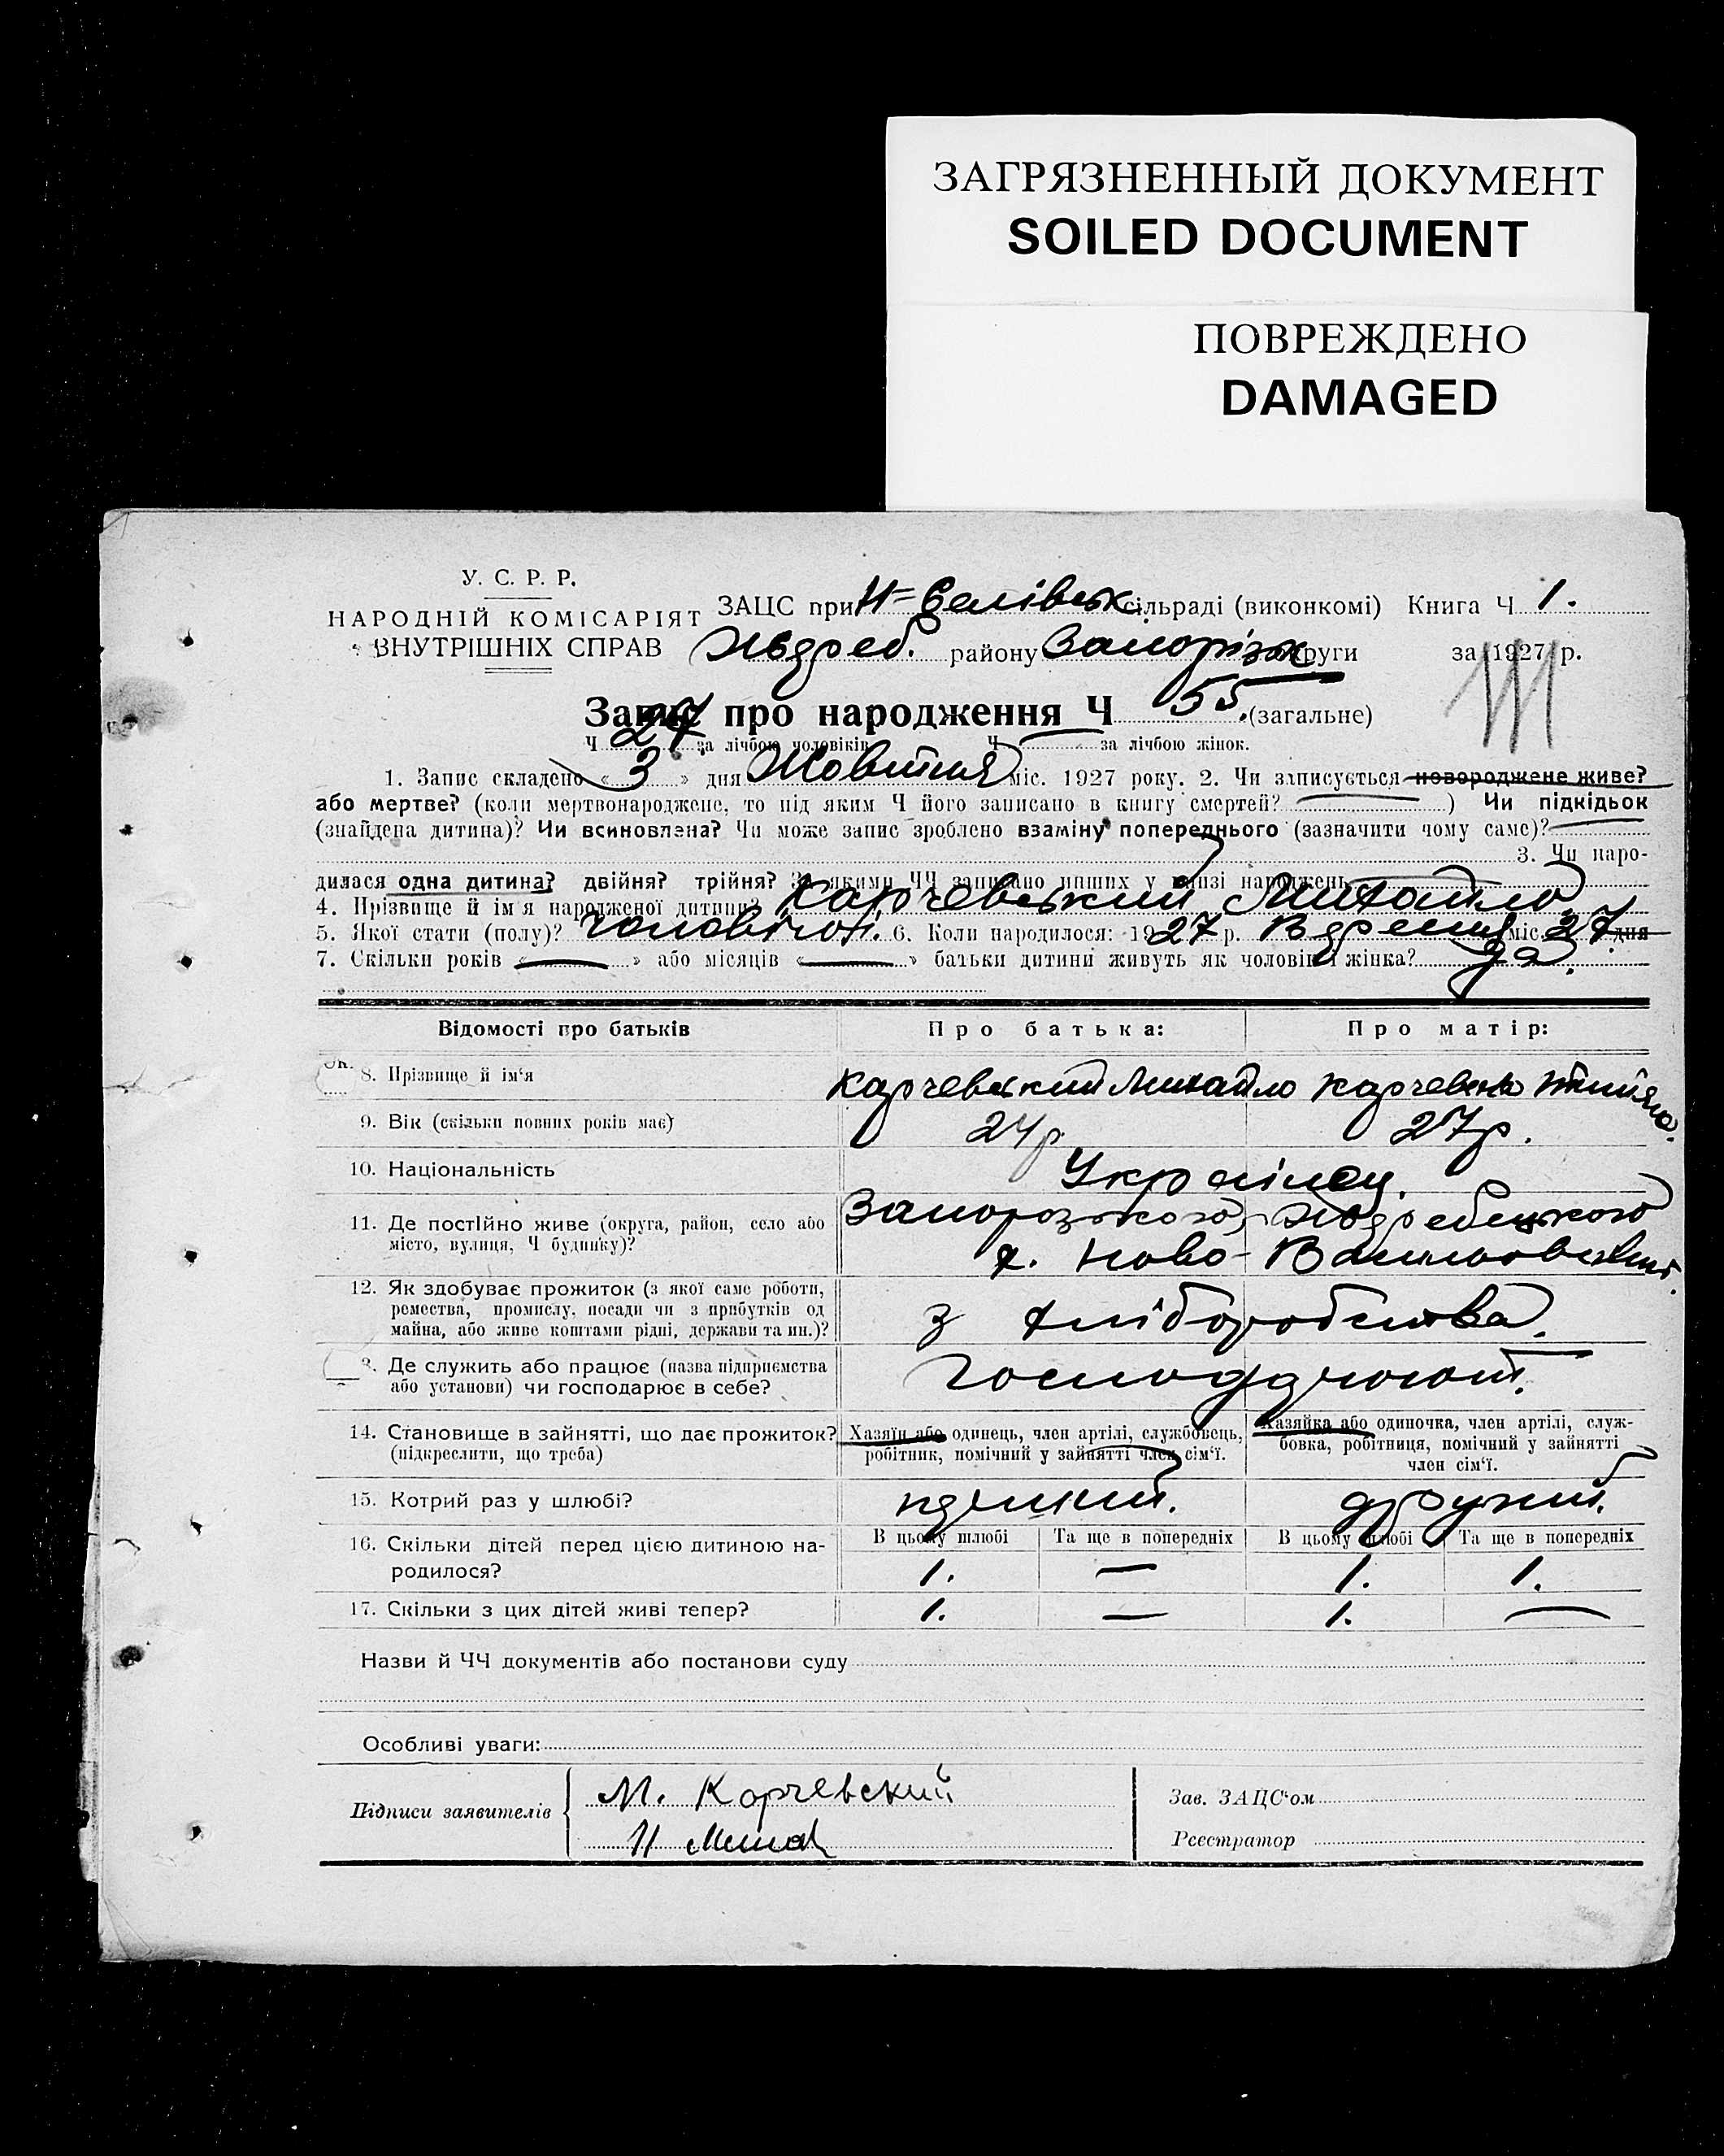 ЗАГРЯЗНЕННЫЙ ДОКУМЕНТ
SOILED DOCUMENT
ПОВРЕЖДЕНО
DAMAGED
У. С. Р. Р.
НАРОДНІЙ КОМІСАРІЯТ
ВНУТРІШНІХ СПРАВ
ЗАЦС при сільраді (виконкомі) Книга Ч 1.
району Запорізьк округи за 1927 р.
Запис про народження Ч 55. (загальне)
Ч 27. за лічбою чоловіків Ч за лічбою жінок.
1. Запис складено « 3 » дня Жовтня міс. 1927 року. 2. Чи записується новороджене живе?
або мертве? (коли мертвонароджене, то під яким Ч його записано в книгу смертей? ) Чи підкідьок
(знайдена дитина)? Чи всиновлена? Чи може запис зроблено взаміну попереднього (зазначити чому саме)?
3. Чи наро-
дилася одна дитина? двійня? трійня? З якими ЧЧ записано инших у книзі народжень
4. Прізвище й ім'я народженої дитини? Карчевський Михайло
5. Якої стати (полу)? 6. Коли народилося: 1927 р. міс. 27 дня
7. Скільки років « — » або місяців « — » батьки дитини живуть як чоловік і жінка? да.
Відомості про батьків Про батька: Про матір:
8. Прізвище й ім'я Карчевський Михайло
9. Вік (скільки повних років має) 24 р. 27 р.
10. Національність Українец.
11. Де постійно живе (округа, район, село або
місто, вулиця, Ч будинку)?
Запорозького,
х. Ново-
12. Як здобуває прожиток (з якої саме роботи,
ремества, промислу, посади чи з прибутків од
майна, або живе коштами рідні, держави та ин.)?
з хліборобства.
13. Де служить або працює (назва підприємства
або установи) чи господарює в себе?
14. Становище в зайнятті, що дає прожиток?
(підкреслити, що треба)
Хазяїн або одинець, член артілі, службовець,
робітник, помічний у зайнятті член сім'ї.
Хазяйка або одиночка, член артілі, служ-
бовка, робітниця, помічний у зайнятті
член сім'ї.
15. Котрий раз у шлюбі? другий.
16. Скільки дітей перед цією дитиною на-
родилося?
В цьому шлюбі Та ще в попередніх В цьому шлюбі Та ще в попередніх
1. — 1. 1.
17. Скільки з цих дітей живі тепер? 1. — 1. —
Назви й ЧЧ документів або постанови суду
Особливі уваги:
Підписи заявителів
М. Карчевский
Зав. ЗАЦС'ом
Реєстратор